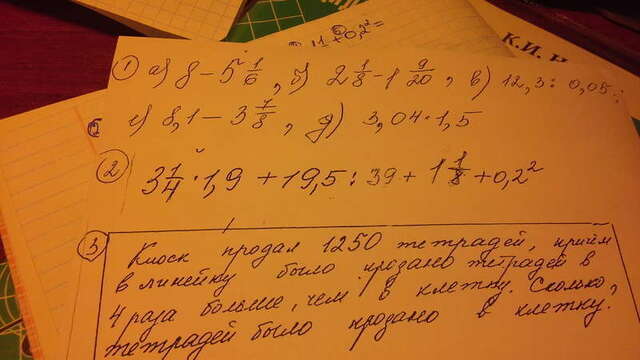 +0,2²=
К.И.
1 а) 8 - 5 1/6, б) 2 1/8 - 1 9/20, в) 12,3 : 0,05;
г) 8,1 - 3 1/8, д) 3,04 · 1,5
2 3 1/4 · 1,9 + 19,5 : 39 + 1 1/8 + 0,2²
3 Киоск продал 1250 тетрадей, причём
в линейку было продано тетрадей в
4 раза больше, чем в клетку. Сколько
тетрадей было продано в клетку.